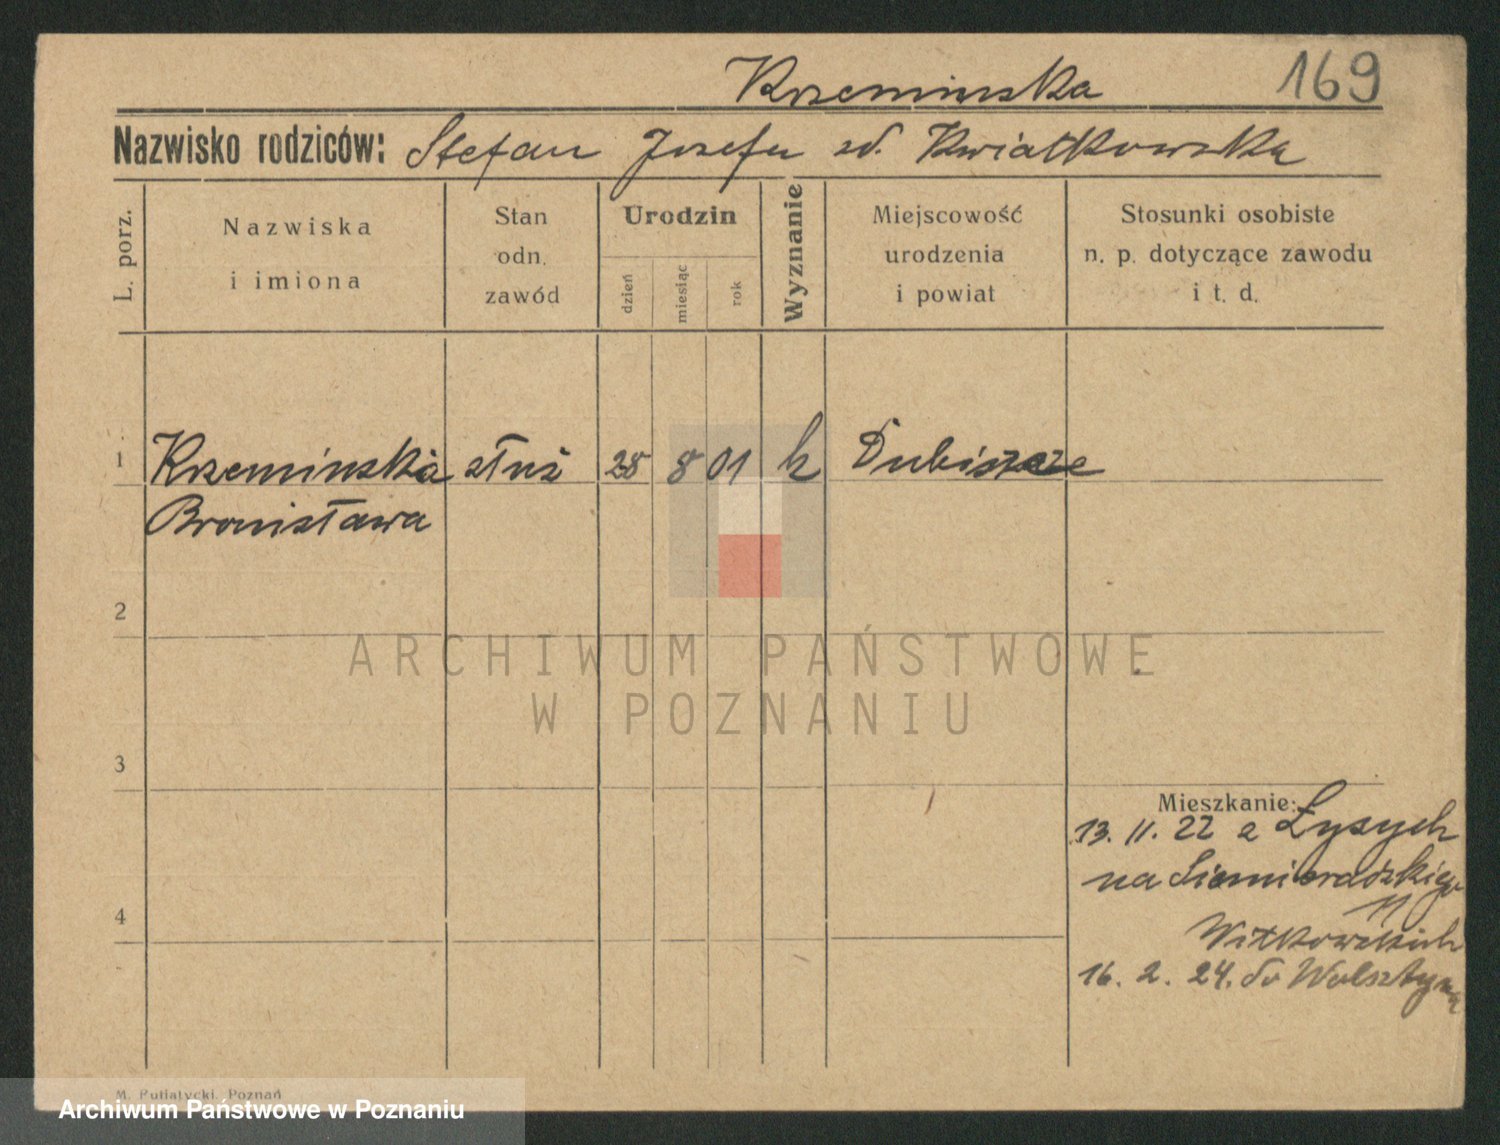 Krzeminska 169
Nazwisko rodziców: Stefan Josefa zd. Kwiatkowska
L. porz.
Nazwiska i imiona
Stan odn. zawód
Urodzin
dzień
miesiąc
rok
Wyznanie
Miejscowość urodzenia i powiat
Stosunki osobiste n. p. dotyczące zawodu i t. d.
1 Krzeminska służ 28 8 01 k Dubiszcze
Bronisława
2
ARCHIWUM PAŃSTWOWE
W POZNANIU
3
Mieszkanie:
13. 11. 22 z Łysych
na Siemieradzkiego
11
Witkowskich
4
16. 2. 24. do Wolsztyna
M. Putiatycki, Poznań
Archiwum Państwowe w Poznaniu